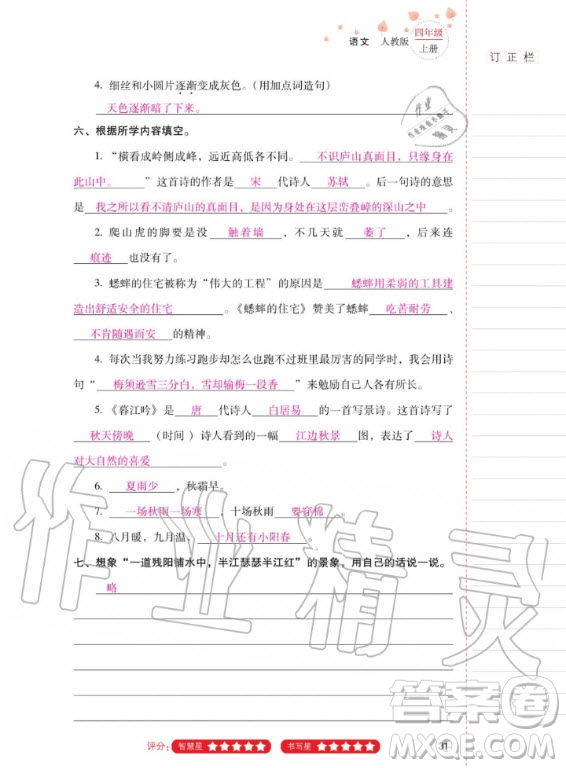 语文 人教版 四年级
上册
订正栏
4. 细丝和小圆片逐渐变成灰色。（用加点词造句）
天色逐渐暗了下来。
六、根据所学内容填空。
1. “横看成岭侧成峰，远近高低各不同。 不识庐山真面目，只缘身在
此山中。 ”这首诗的作者是 宋 代诗人 苏轼 。后一句诗的意思
是 我之所以看不清庐山的真面目，是因为身处在这层峦叠嶂的深山之中 。
2. 爬山虎的脚要是没 触着墙 ，不几天就 萎了 ，后来连
痕迹 也没有了。
3. 蟋蟀的住宅被称为“伟大的工程”的原因是 蟋蟀用柔弱的工具建
造出舒适安全的住宅 。《蟋蟀的住宅》赞美了蟋蟀 吃苦耐劳 、
不肯随遇而安 的精神。
4. 每次当我努力练习跑步却怎么也跑不过班里最厉害的同学时，我会用诗
句“ 梅须逊雪三分白，雪却输梅一段香 ”来勉励自己人各有所长。
5. 《暮江吟》是 唐 代诗人 白居易 的一首写景诗。这首诗写了
秋天傍晚 （时间 ）诗人看到的一幅 江边秋景 图，表达了 诗人
对大自然的喜爱 。
6. 夏雨少 ，秋霜早。
7. 一场秋雨一场寒 ，十场秋雨 要穿棉 。
8. 八月暖，九月温， 十月还有小阳春 。
七、想象“一道残阳铺水中，半江瑟瑟半江红”的景象。用自己的话说一说。
略
作业精灵
答案圈
评分： 智慧星 ★★★★★ 书写星 ★★★★★
31